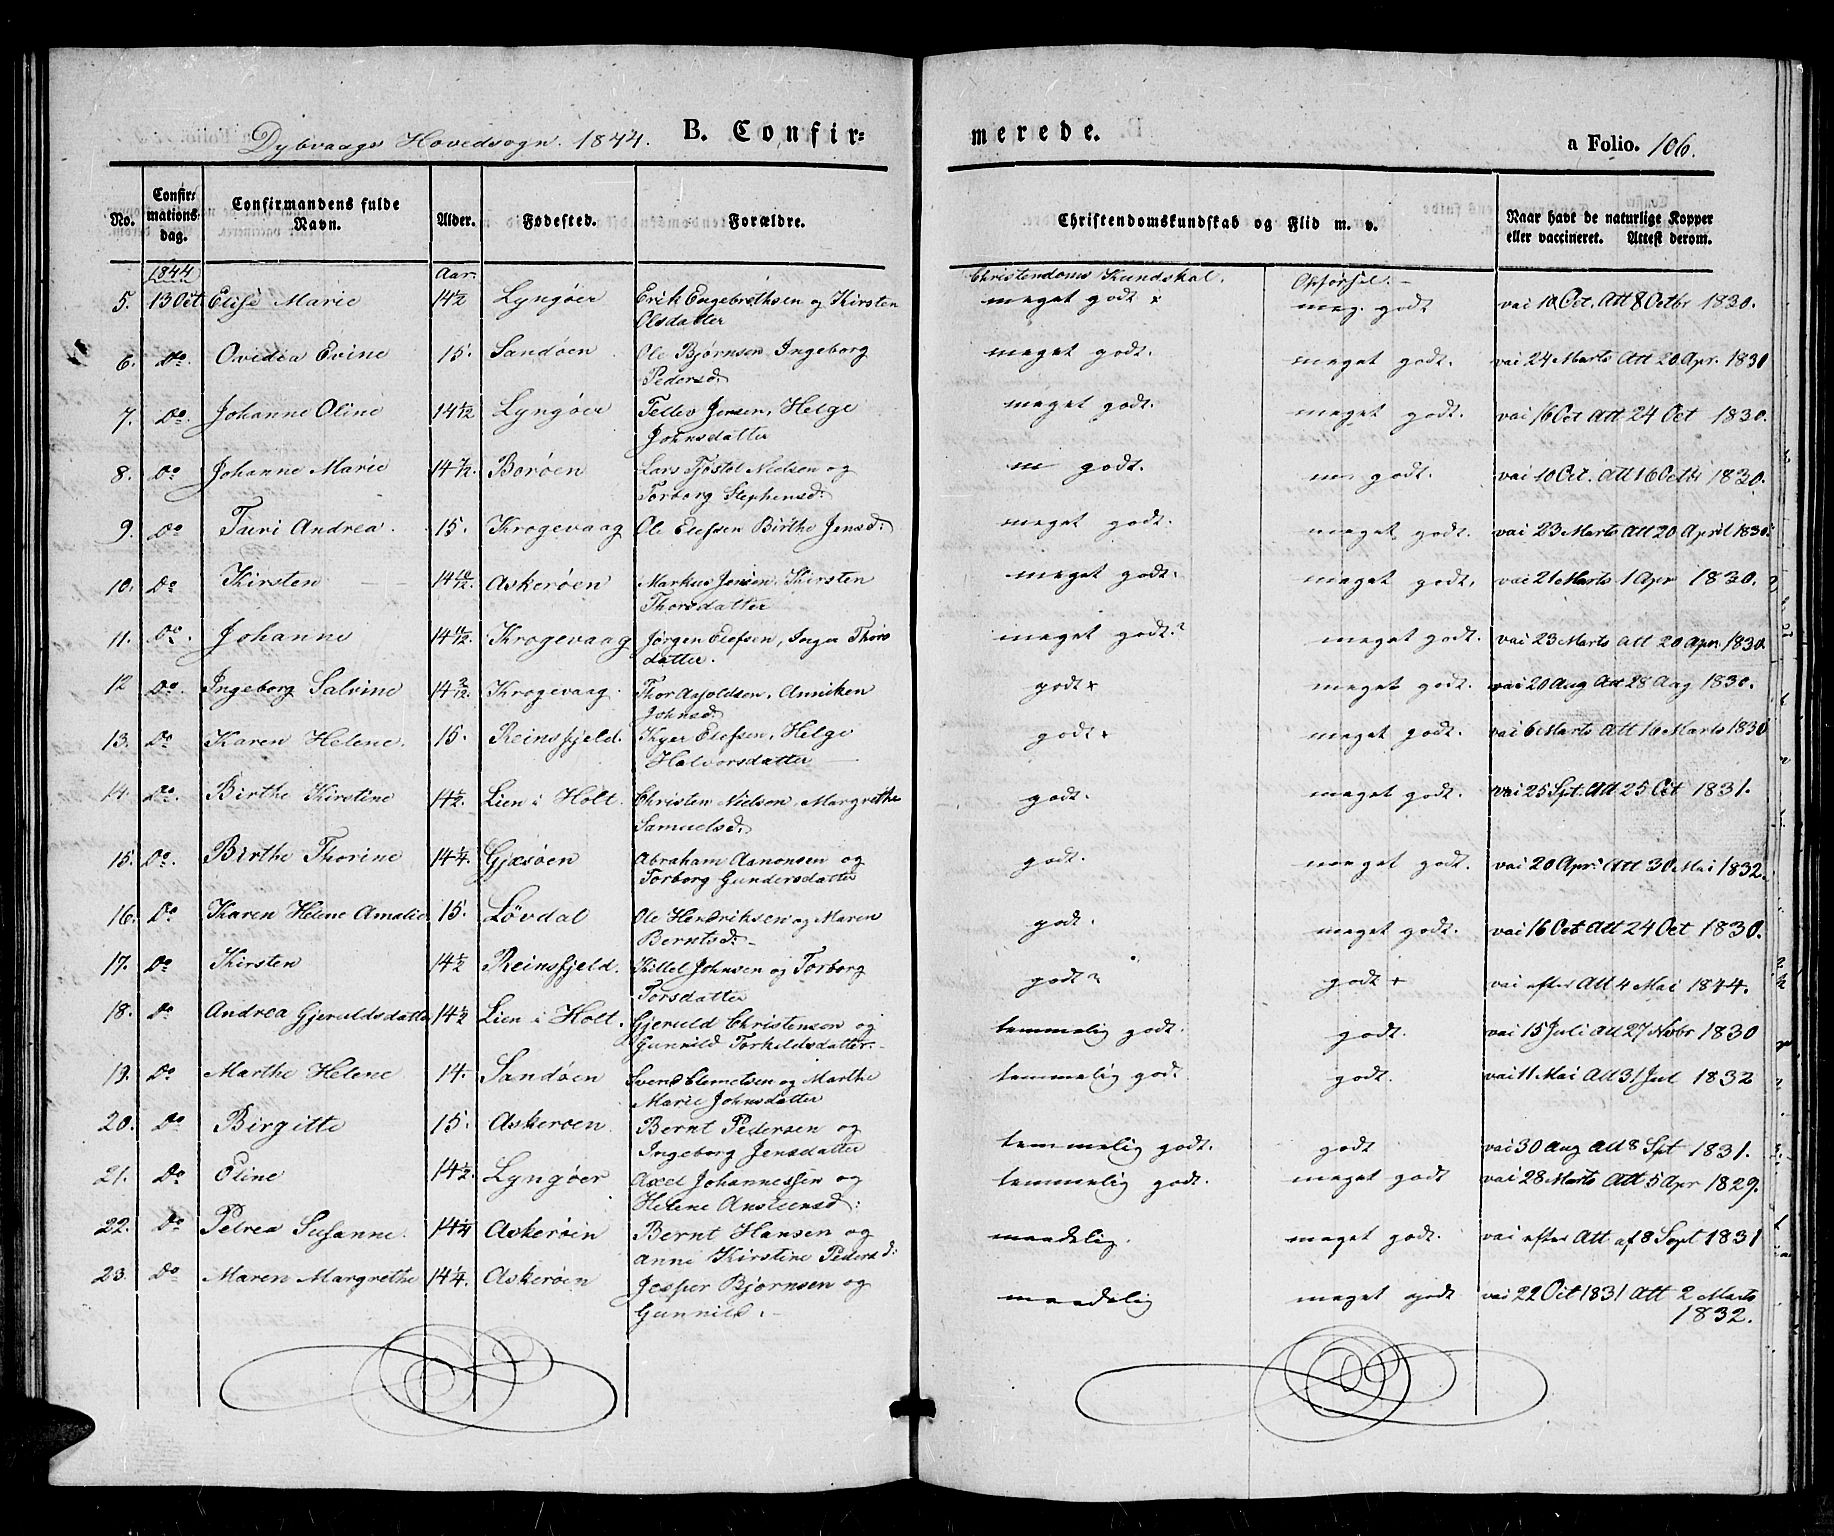 Dybvaags Hovedsogn. 1844. B. Confir=
merede. a Folio. 106.
No. Confir= mations= dag. Confirmandens fulde Navn. Alder. Fødested. Forældre. Christendomskundskab og Flid m. v. Naar havt de naturlige Kopper eller vaccineret. Attest derom.
1844 Aar. Christendoms Kundskab. Opførsel.
5. 13 Oct Elise Marie 14½ Lyngøer Erik Engebrethsen og Kirsten meget godt x meg. godt vai 10 Oct. Att 8 Octbr 1830.
Olsdatter
6. Do. Ovidea Evine 15. Sandøen Ole Bjørnsen, Ingeborg meget godt. meget godt. vai 24 Marts Att 20 Apr. 1830
Pedersd:
7. Do. Johanne Oline 14 Lyngøer Tellev Jensen, Helge meget godt. meget godt. vai 16 Oct Att 24 Oct 1830.
Johnsdatter
8. Do Johanne Marie 14 7/12. Borøen Lars Tjøstel Nielsen og m godt. m godt. vai 10 Oct. Att 16 Octbr 1830.
Torborg Stephensd:
9. Do Turi Andrea. 15. Krogevaag Ole Elefsen Birthe Jensd: meget godt. meget godt. vai 23 Marts Att 20 April 1830.
10. Do Kirsten 14 10/12. Askerøen Markus Jensen, Kirsten meget godt. meget godt. vai 21 Marts 1 Apr 1830.
Thorsdatter
11. Do. Johanne 14 Krogevaag Jørgen Elefsen, Inga Thors meget godt. meget godt. vai 23 Marts att 20 Apr. 1830.
datter.
12 Do. Ingeborg Salvine 14 Krogevaag. Thor Asjoldsen, Anniken godt x meget godt. vai 20 Aug Att 28 Aug 1830.
Johnsd:
13. Do Karen Helene. 15. Reinsfjeld. Kyer Elefsen, Helge godt x meget godt. vai 6 Marts att 16 Marts 1830
Halvorsdatter
14. Do. Birthe Kirstine 14½. Lien i Holt. Christen Nielsen, Margrethe godt. meget godt. vai 25 Spt. Att 25 Oct 1831.
Samuelsd:
15. Do. Birthe Thorine 14¼. Gjæsøen Abraham Aanonsen og godt. meget godt. vai 20 Apr Att 30 Mai 1832.
Torborg Gundersdatter
16. Do Karen Helene Amalie 15. Løvdal Ole Hendriksen og Maren godt. meget godt. vai 16 Oct Att 24 Oct 1830.
Berntsd:
17. Do Kirsten 14½ Reinsfjeld. Kittel Johnsen og Torborg godt godt + vai efter Att 4 Mai 1844.
Torsdatter
18. Do Andrea Gjeruldsdatter 14½ Lien i Holt. Gjeruld Christensen og temmelig godt. godt. vai 15 Juli Att 27 Novbr 1830
Gunnild Torkildsdatter.
19. Do Marthe Helene 14. Sandøen Svend Clemetsen og Marthe temmelig godt. godt. vai 11 Mai Att 31 Jul 1832
Marie Johnsdatter
20. Do Birgitte 15. Askerøen. Bernt Pedersen og temmelig godt. godt vai 30 Aug Att 8 Spt 1831.
Ingeborg Jensdatter
21. Do Eline 14½. Lyngøer Axel Johannessen og temmelig godt. meget godt vai 28 Marts Att 5 Apr 1829.
Helene Anstensd:
22. Do Petrea Susanne. 14¼ Askerøen Bernt Hansen og maadelig. meget godt. vai efter Att af 8 Sept 1831
Anne Kirstine Pedersd:
23. Do Maren Margrethe 14¼. Askerøen Jesper Bjørnsen og maadelig meget godt vai 22 Oct 1831 Att 2 Marts
Gunnild. 1832.